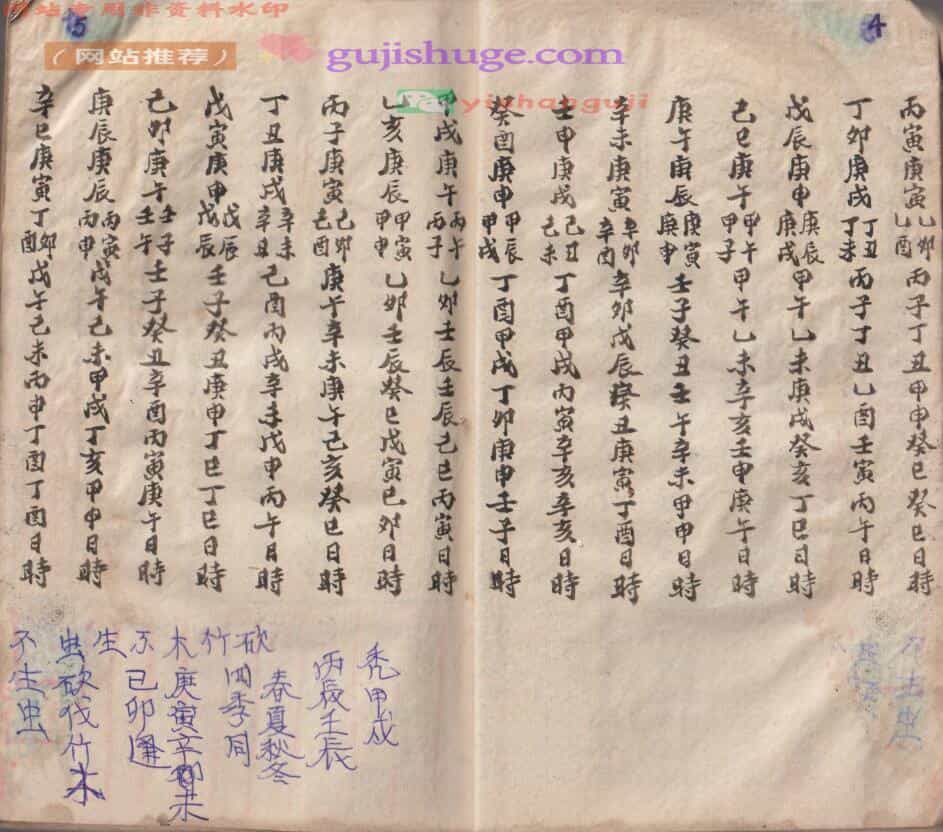 4
丙寅庚寅乙卯乙酉丙子丁丑甲申癸巳癸巳日時
丁卯庚戌丁丑丁未丙子丁丑乙酉壬寅丙午日時
戊辰庚申庚辰庚戌甲午乙未庚戌癸亥丁巳日時
己巳庚午甲午甲子甲午乙未辛亥壬申庚午日時
庚午庚辰庚寅庚申壬子癸丑壬午辛未甲申日時
辛未庚寅辛卯辛酉辛卯戊辰癸丑庚寅丁酉日時
壬申庚戌己丑己未丁酉甲戌丙寅辛亥辛亥日時
癸酉庚申甲辰甲戌丁酉甲戌丁卯庚申壬子日時
不生虫
5
甲戌庚午丙午丙子乙卯壬辰壬辰己巳丙寅日時
乙亥庚辰甲寅甲申乙卯壬辰癸巳戊寅己卯日時
丙子庚寅己卯己酉庚午辛未庚午己亥癸巳日時
丁丑庚戌辛未辛丑己酉丙戌辛未戊申丙午日時
戊寅庚申戊辰戊辰壬子癸丑庚申丁巳丁巳日時
己卯庚午壬子壬午壬子癸丑辛酉丙寅庚午日時
庚辰庚辰丙寅丙申戊午己未甲戌丁亥甲申日時
辛巳庚寅丁卯丁酉戊午己未丙申丁酉丁酉日時
秃甲戌
丙辰壬辰
春夏秋冬
砍
四季同
竹
木庚寅辛卯未
不己卯逢
生
虫砍伐竹木
不生虫
网站专用非资料水印
（网站推荐）
gujishuge.com
yinhanguji